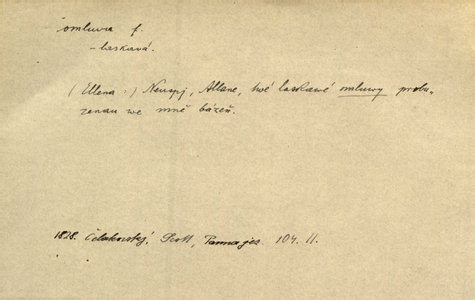 omluva f.
- laskavá.
(Ellena:) Neuspj, Allane, twé laskawé omluwy probu-
zenau we mně bázeň.
1828. Čelakovský, Scott, Panna jez. 104. II.